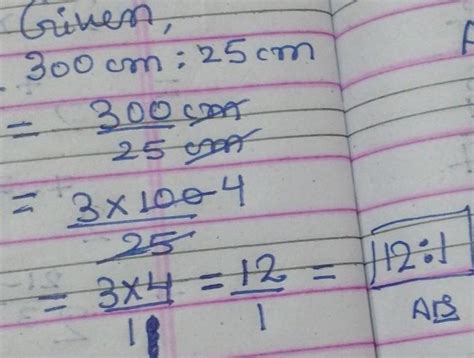 Given,
300 cm : 25 cm
= 300 cm / 25 cm
= 3 × 100 4 / 25
= 3×4 / 1 = 12 / 1 = 12:1